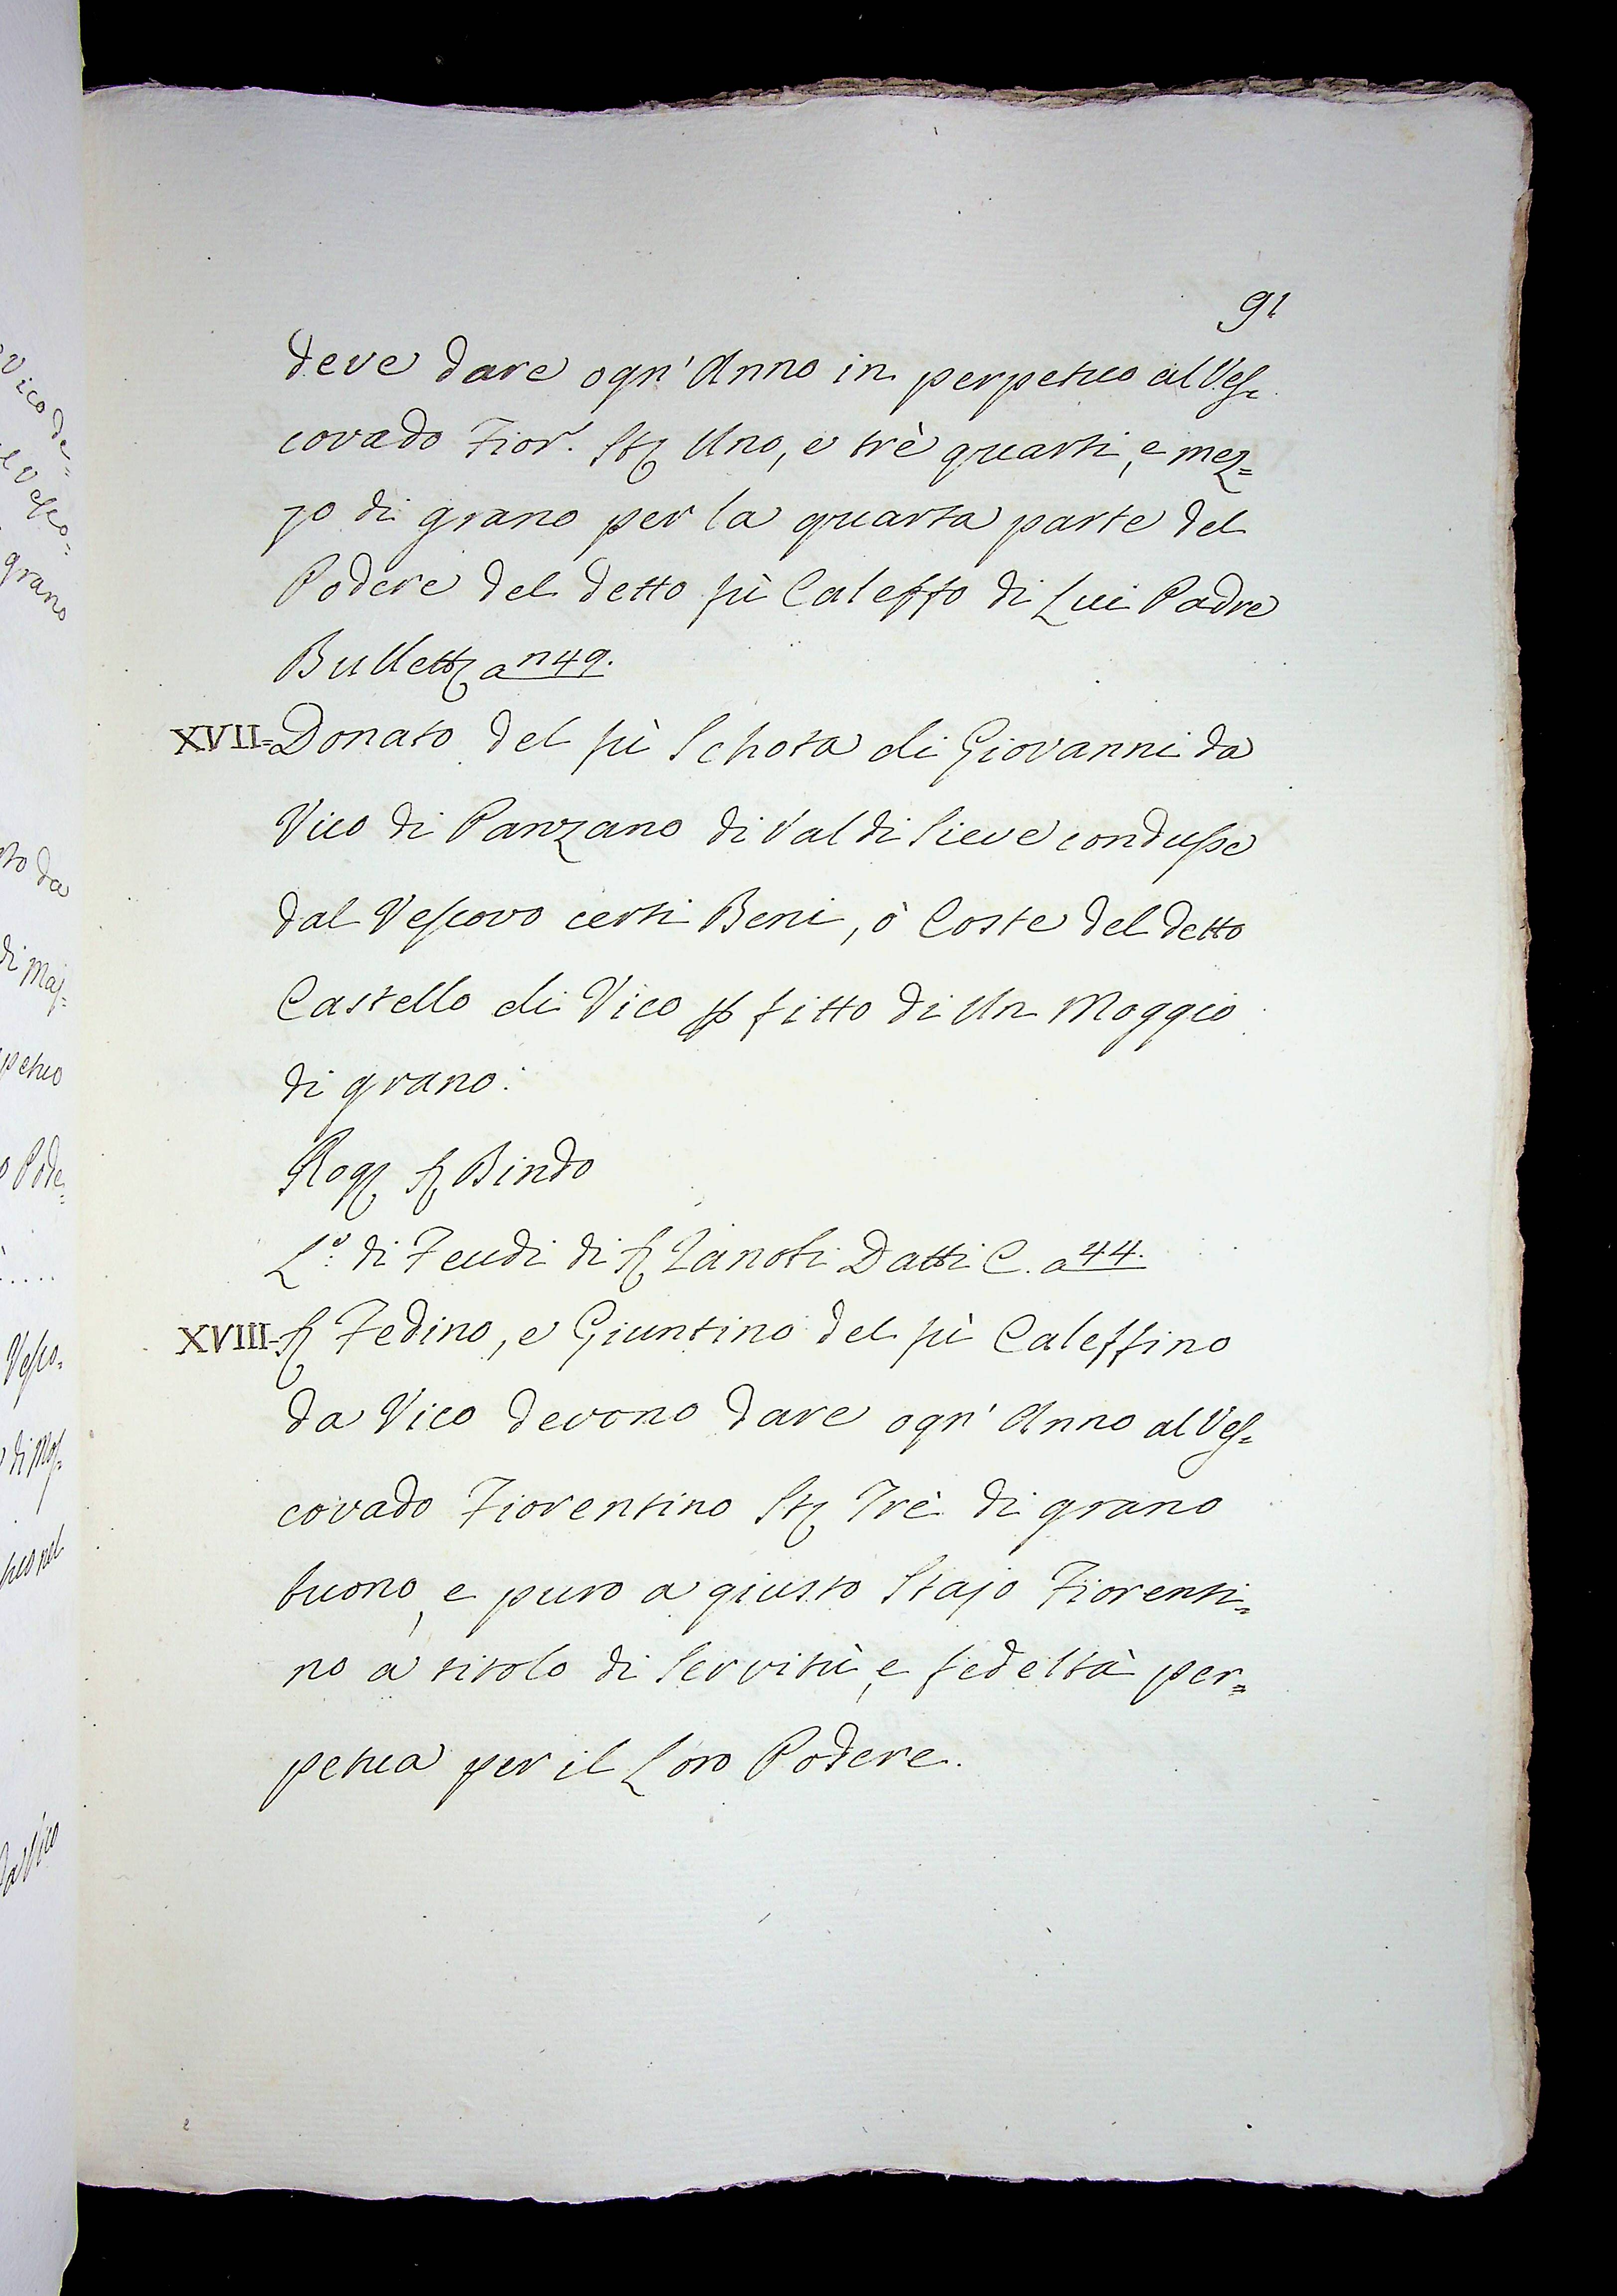 91
deve dare ogn' Anno in perpetuo al Ves=
covado Fior.º St.ª Uno, e trè quarti, e mez=
zo di grano per la quarta parte del
Podere del detto fù Caleffo di Lui Padre
Bullett.ª a n 49.
XVII= Donato del fù Schota di Giovanni da
Vico di Panzano di Val di Sieve condusse
dal Vescovo certi Beni, ò Coste del detto
Castello di Vico p fitto di Un Moggio
di grano:
Rog. S. Bindo
L.º di Feudi di S. Zanobi Datti C. a 44.
XVIII= S. Fedino, e Giuntino del fù Caleffino
da Vico devono dare ogn' Anno al Ves=
covado Fiorentino St.ª Trè di grano
buono, e puro a giusto Stajo Fiorenti=
no a titolo di Servitù, e fedeltà per=
petua per il Loro Podere.